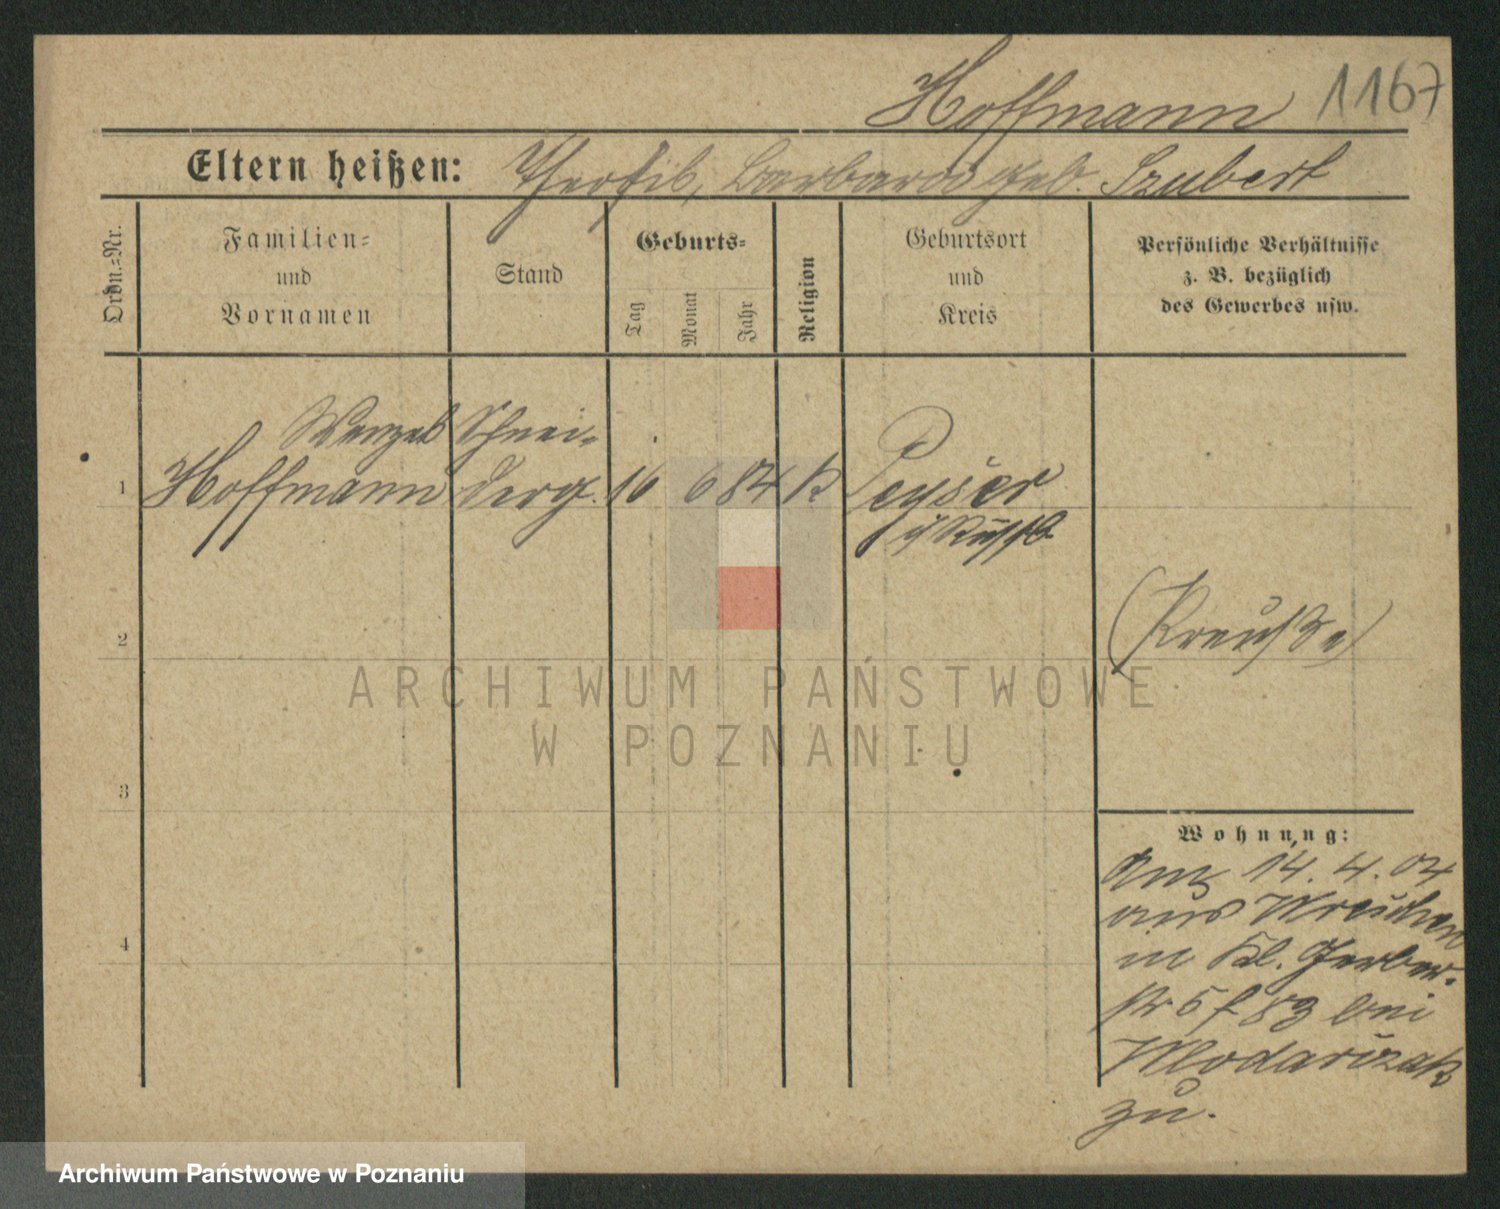 Hoffmann 1167
Eltern heißen: Theofil, Barbara geb. Szubert
Ordn.=Nr.
Familien=
und
Vornamen
Stand
Geburts=
Tag
Monat
Jahr
Religion
Geburtsort
und
Kreis
Persönliche Verhältnisse
z. B. bezüglich
des Gewerbes usw.
Wenzel Schnei=
1 Hoffmann derg. 16 6 84 K Peyser
i/ Russl.
2 (Preuße)
ARCHIWUM PAŃSTWOWE
W POZNANIU
3
Wohnung:
Am 14. 4. 04
aus
4
in Kl. Gerber=
str 5 bei
zu.
Archiwum Państwowe w Poznaniu